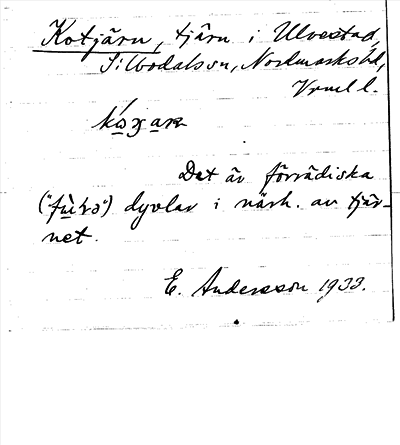 Kotjärn, tjärn i Ulvestad,
Silbodals sn, Nordmarks hd,
Vrml l.
Det är förrädiska
dyvlar i närh. av tjär-
net.
E. Andersson 1933.